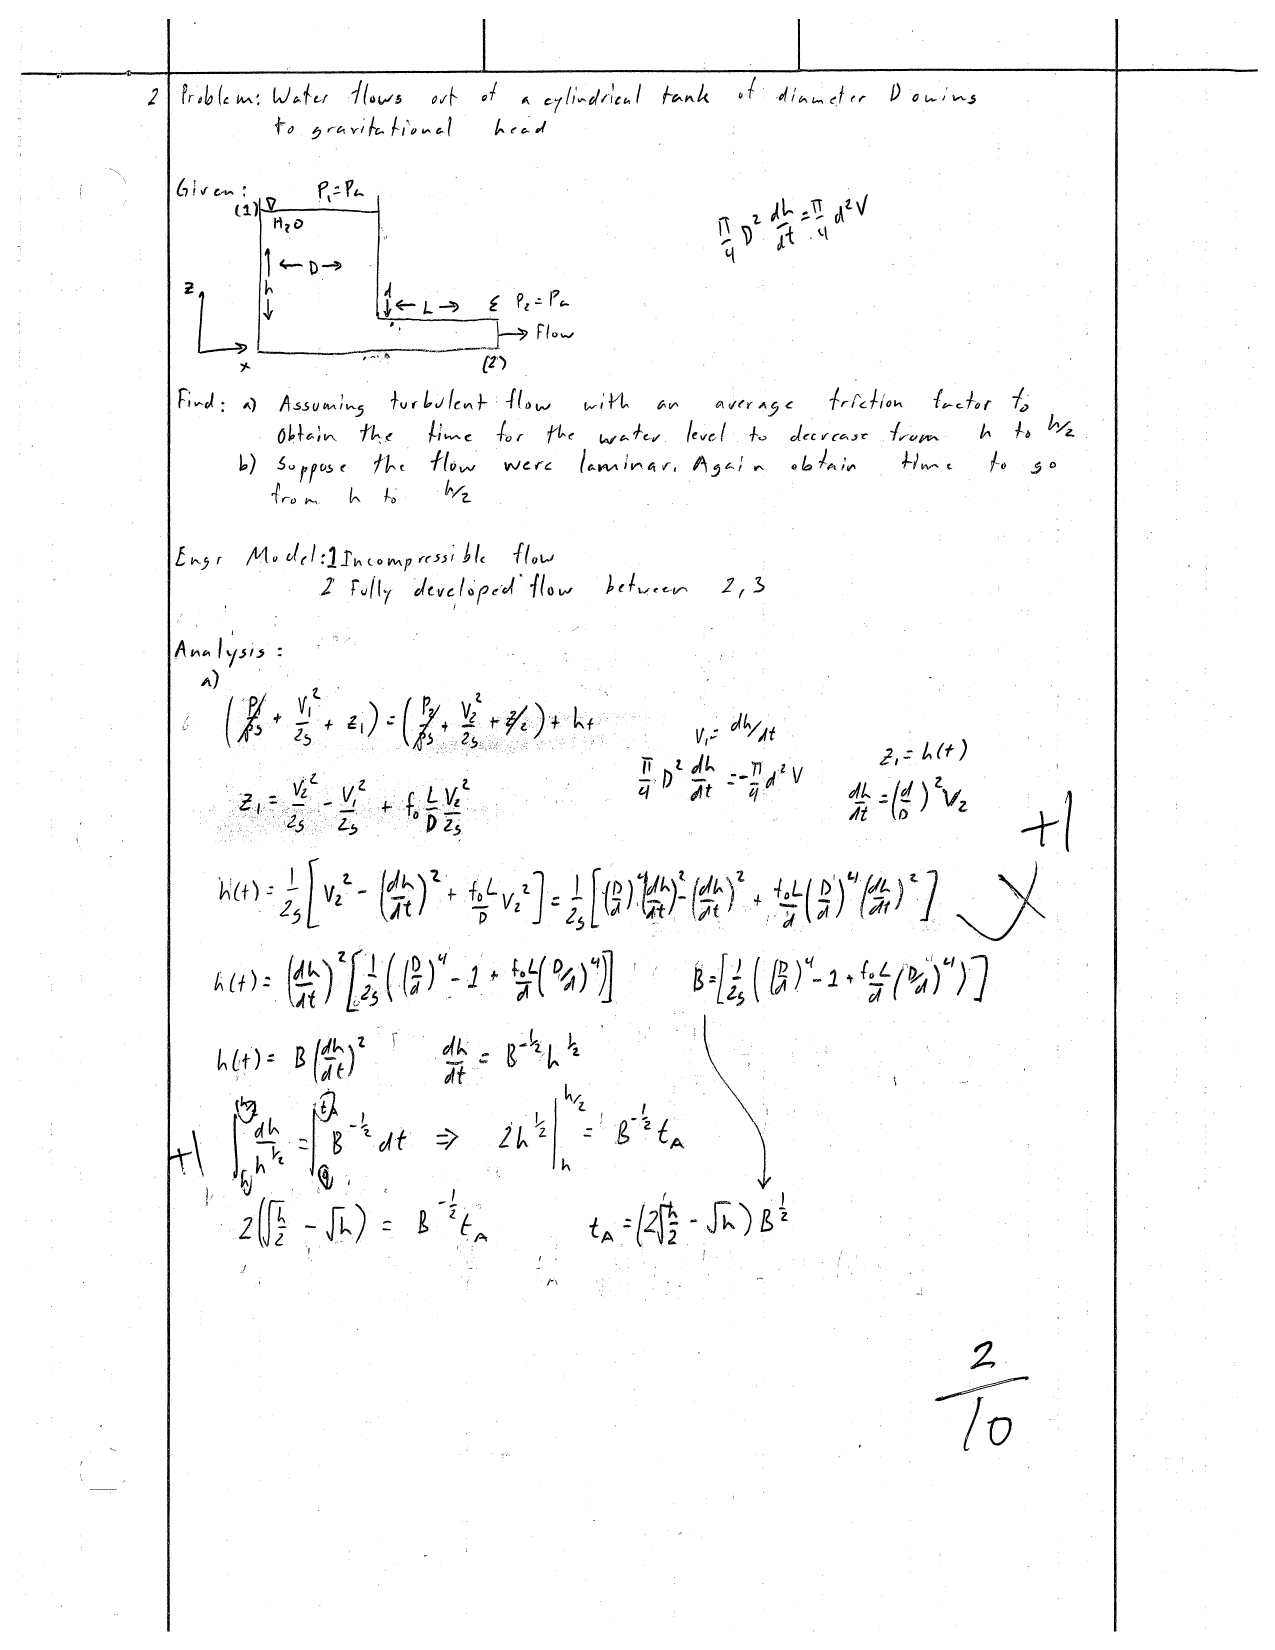 2 Problem: Water flows out of a cylindrical tank of diameter D owing
to gravitational head
Given: P₁=Pa
(1) ∇
H₂O
← D →
h
z
x
d ← L → ε P₂=Pa
→ Flow
(2)
π/4 D² dh/dt = π/4 d² V
Find: a) Assuming turbulent flow with an average friction factor fo
Obtain the time for the water level to decrease from h to h/2
b) Suppose the flow were laminar. Again obtain time to go
from h to h/2
Engr Model: 1 Incompressible flow
2 Fully developed flow between 2,3
Analysis:
a)
(P₁/ρg + V₁²/2g + z₁) = (P₂/ρg + V₂²/2g + z₂) + hf
V₁ = dh/dt
z₁ = h(t)
z₁ = V₂²/2g - V₁²/2g + f₀ L/D V₂²/2g
π/4 D² dh/dt = -π/4 d² V
dh/dt = (d/D)² V₂
+1
h(t) = 1/2g [V₂² - (dh/dt)² + f₀L/D V₂²] = 1/2g [(D/d)⁴(dh/dt)² - (dh/dt)² + f₀L/d (D/d)⁴ (dh/dt)²]
h(t) = (dh/dt)² [1/2g ((D/d)⁴ - 1 + f₀L/d (D/d)⁴)] B = [1/2g ((D/d)⁴ - 1 + f₀L/d (D/d)⁴)]
h(t) = B (dh/dt)² dh/dt = B^-½ h^½
+1 ∫ dh/h^½ = ∫ B^-½ dt ⇒ 2h^½ |ₕ^h/2 = B^-½ t_A
2(√h/2 - √h) = B^-½ t_A t_A = (2√h/2 - √h) B^½
2/10